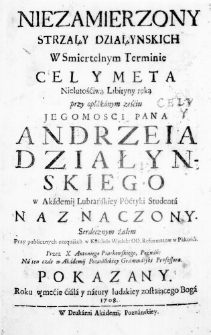 NIEZAMIERZONY
STRZAŁY DZIAŁYNSKICH
W Smiertelnym Terminie
CEL Y META
Nielutościwą Libityny ręką
przy opłákánym ześćiu
CELY
JEGOMOSCI PANA
ANDRZEIA
DZIAŁYN-
SKIEGO
w Akádemij Lubráńskiey Poetyki Studentá
NAZNACZONY.
Serdecznym żalem
Przy publicznych exequiách w Kośćiele
X. Antoniego
Ná ten czás w Akádemij Poznáńskiey Grammátyki Professora.
POKAZANY,
Roku w mećie ćiáłá y nátury ludzkiey zostáiącego Bogá
1708.
W Drukárni Akádemij Poznáńskiey.